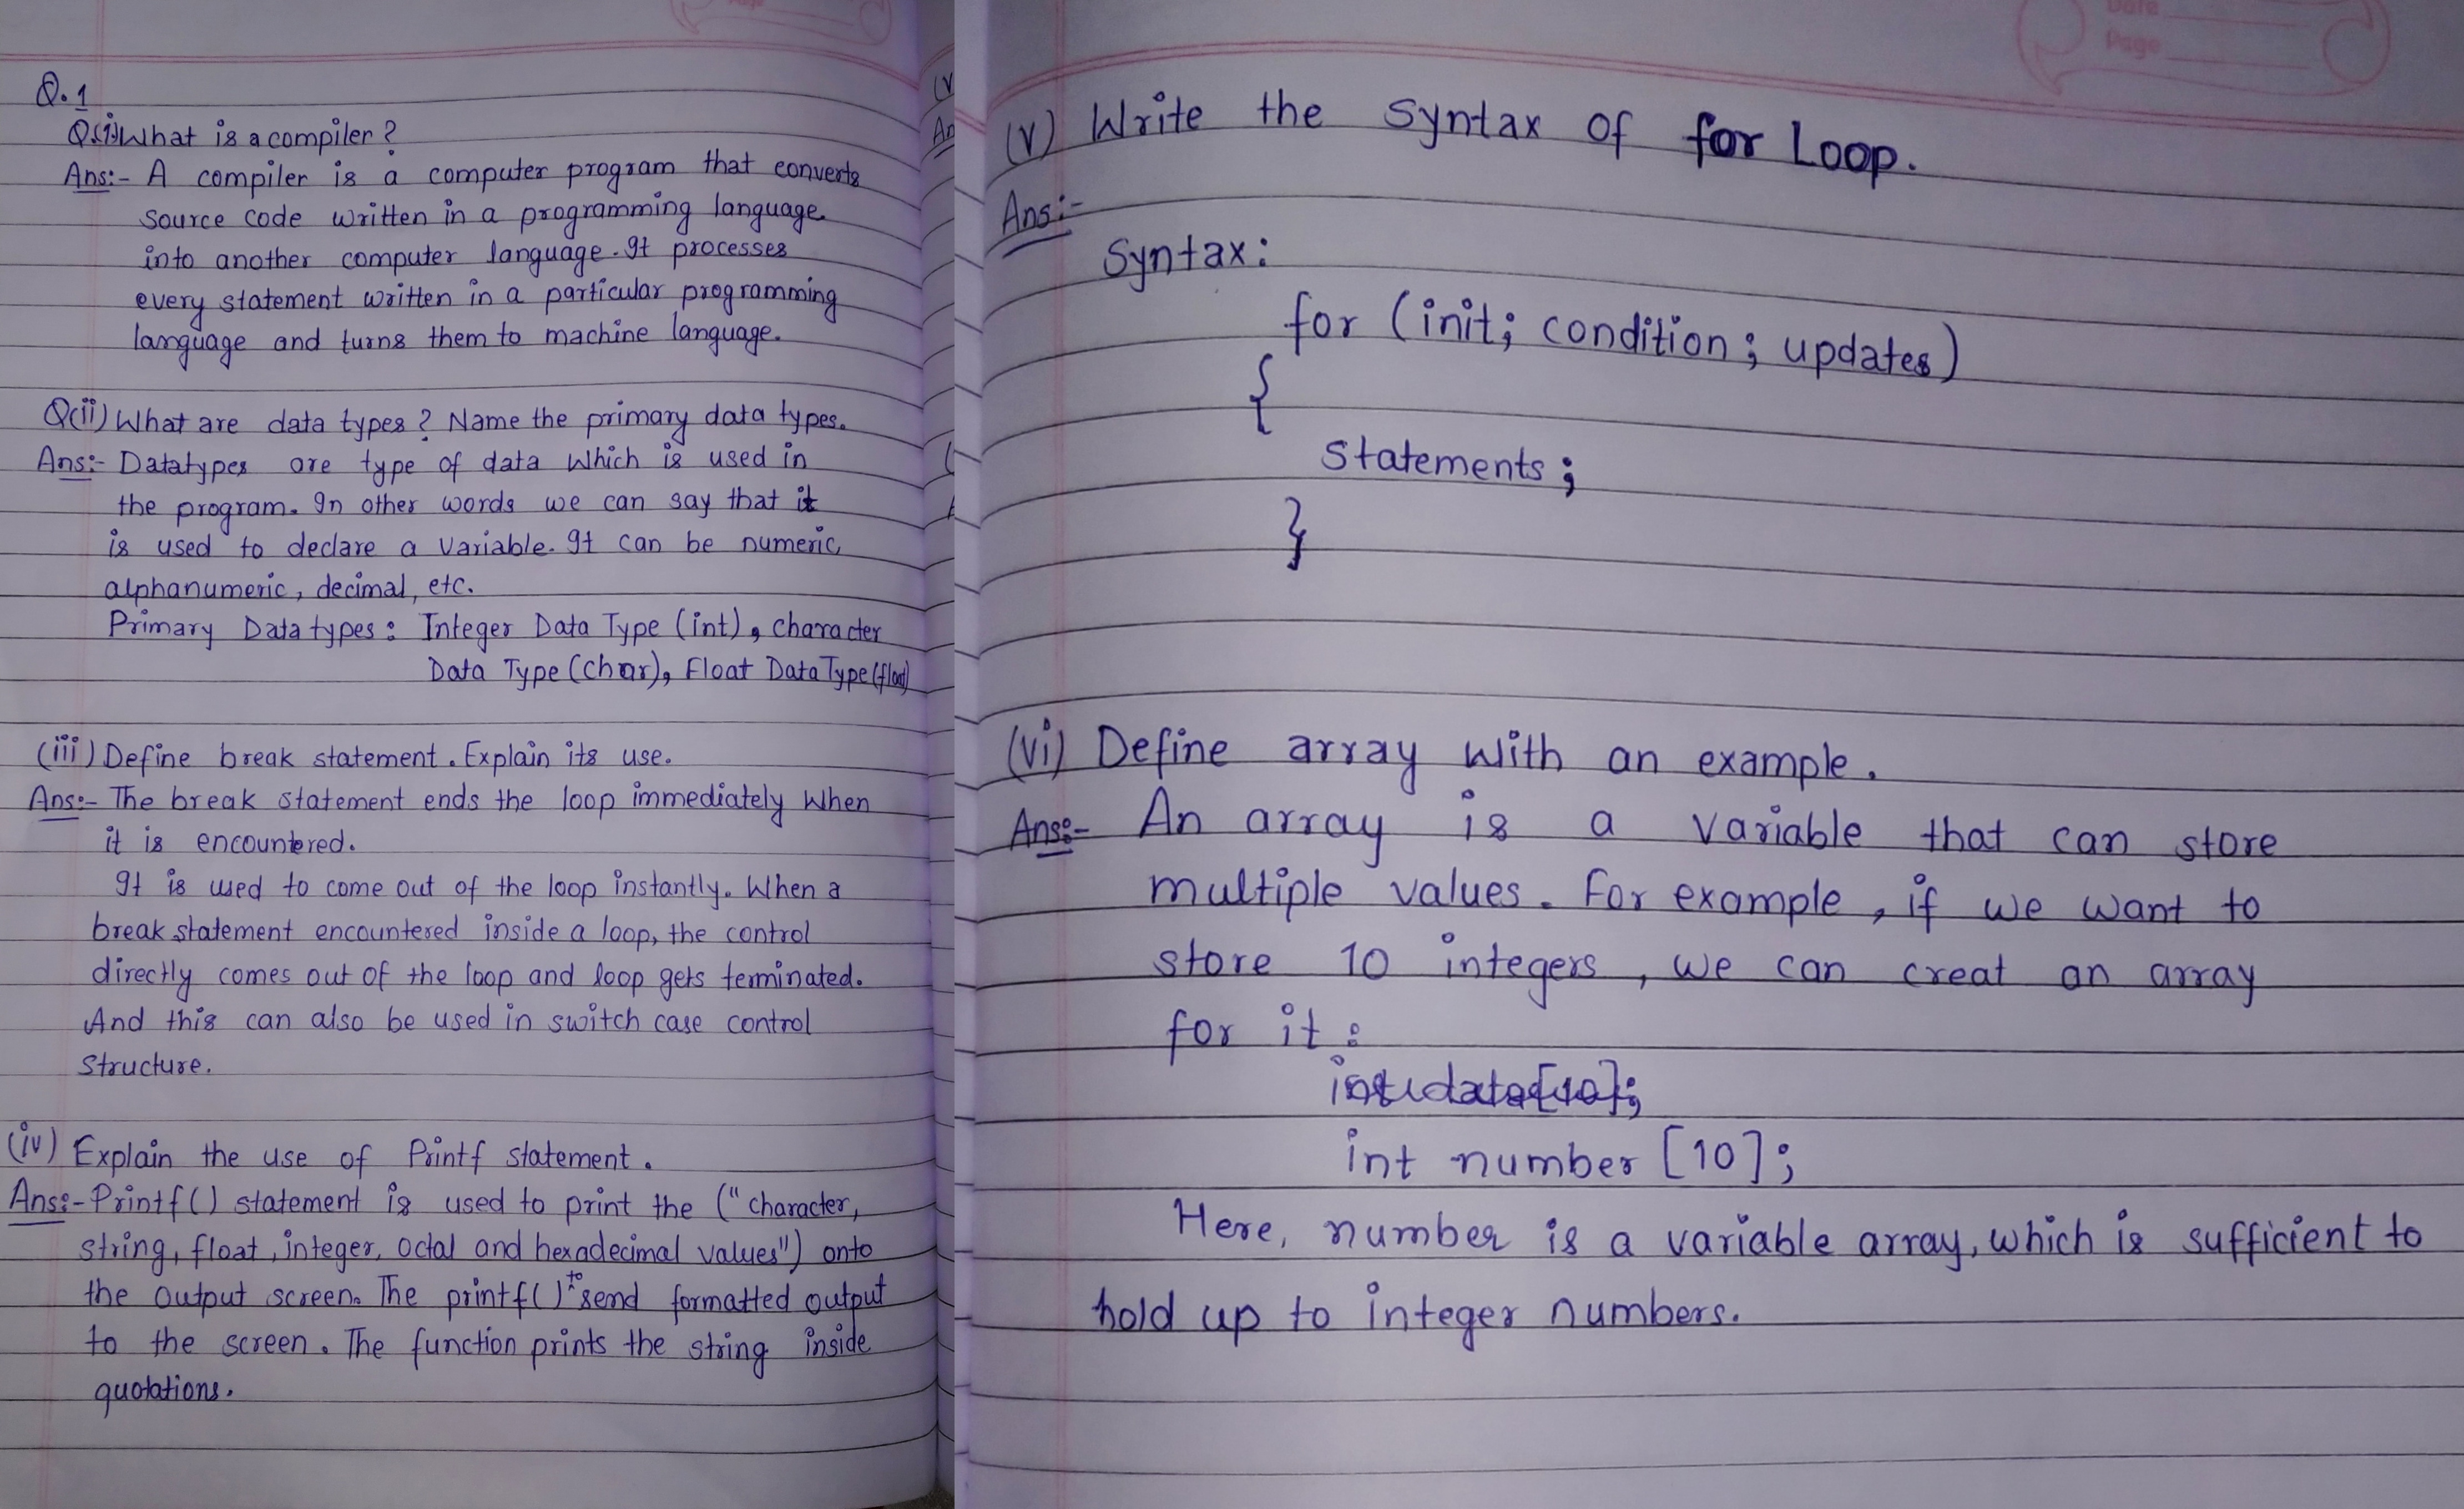 Q.1
Q(i) What is a compiler?
Ans:- A compiler is a computer program that converts
source code written in a programming language
into another computer language. It processes
every statement written in a particular programming
language and turns them to machine language.
Q(ii) What are data types? Name the primary data types.
Ans:- Datatypes are type of data which is used in
the program. In other words we can say that it
is used to declare a variable. It can be numeric,
alphanumeric, decimal, etc.
Primary Data types: Integer Data Type (int), character
Data Type (char), Float Data Type (float)
(iii) Define break statement. Explain its use.
Ans:- The break statement ends the loop immediately when
it is encountered.
It is used to come out of the loop instantly. When a
break statement encountered inside a loop, the control
directly comes out of the loop and loop gets terminated.
And this can also be used in switch case control
structure.
(iv) Explain the use of Printf statement.
Ans:- Printf() statement is used to print the ("character,
string, float, integer, octal and hexadecimal values") onto
the output screen. The printf() to send formatted output
to the screen. The function prints the string inside
quotations.
Date
Page
(V) Write the syntax of for Loop.
Ans:-
Syntax:
for (init; condition; updates)
{
statements;
}
(vi) Define array with an example.
Ans:- An array is a variable that can store
multiple values. For example, if we want to
store 10 integers, we can creat an array
for it:
int data[10];
int number [10];
Here, number is a variable array, which is sufficient to
hold up to integer numbers.